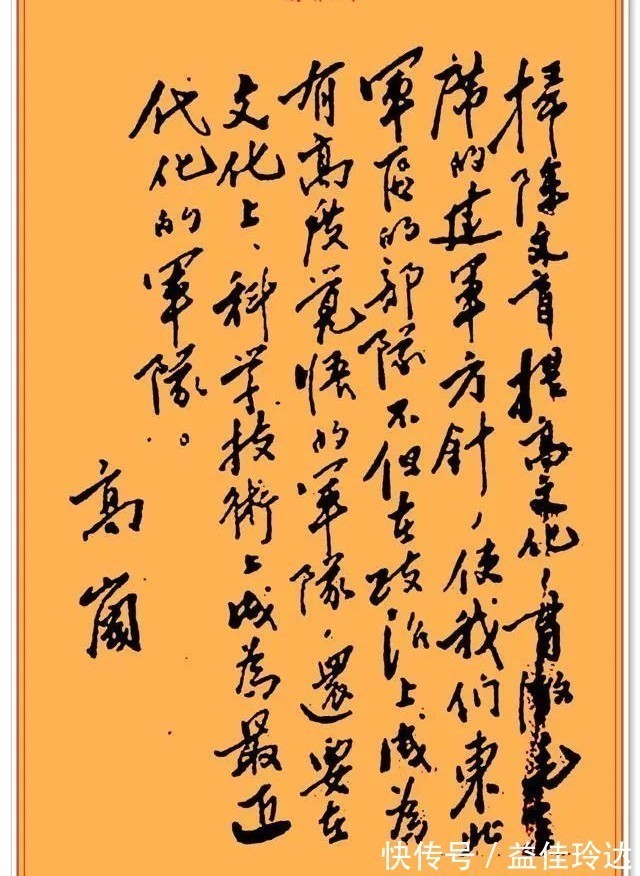 掃除文盲提高文化，貫澈毛主
席的建軍方針，使我们東北
軍区的部隊不但在政治上成為
有高度覚悟的軍隊，還要在
文化上、科学技術上成為最近
代化的軍隊。
高崗
快传号/益佳玲达